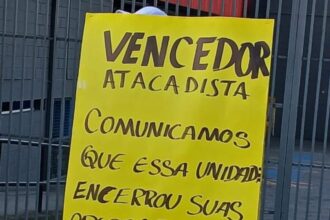 VENCEDOR
ATACADISTA
COMUNICAMOS
QUE ESSA UNIDADE
ENCERROU SUAS